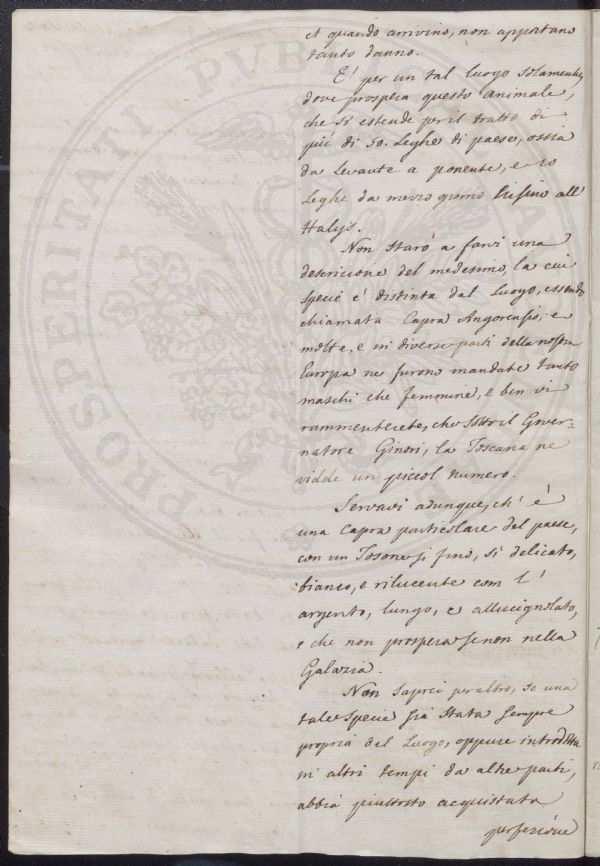 et quando arrivino, non apportano
tanto danno.
E' per un tal luogo solamente,
dove prospera questo animale,
che si estende per il tratto di
più di 50. Leghe di paese, ossia
da Levante a ponente, e 20
Leghe da mezzo giorno insino all'
Halijs.
Non starò a farvi una
descrizione del medesimo, la cui
specie è distinta dal Luogo, essendo
chiamata Capra Angorensis, e
molte, e in diverse parti della nostra
Europa ne furono mandate tanto
maschi che femmine, e ben vi
rammenterete, che sotto il Gover=
natore Ginori, la Toscana ne
vidde un piccol numero.
Servavi adunque, ch' è
una Capra particolare del paese,
con un Tosone sì fino, sì delicato,
bianco, e rilucente com l'
argento, lungo, e allucignolato,
e che non prospera se non nella
Galazia.
Non saprei per altro, se una
tale specie sia stata sempre
propria del Luogo, oppure introdotta
in altri tempi da altre parti,
abbia piuttosto acquistata
perfezione
PROSPERITATI PUB